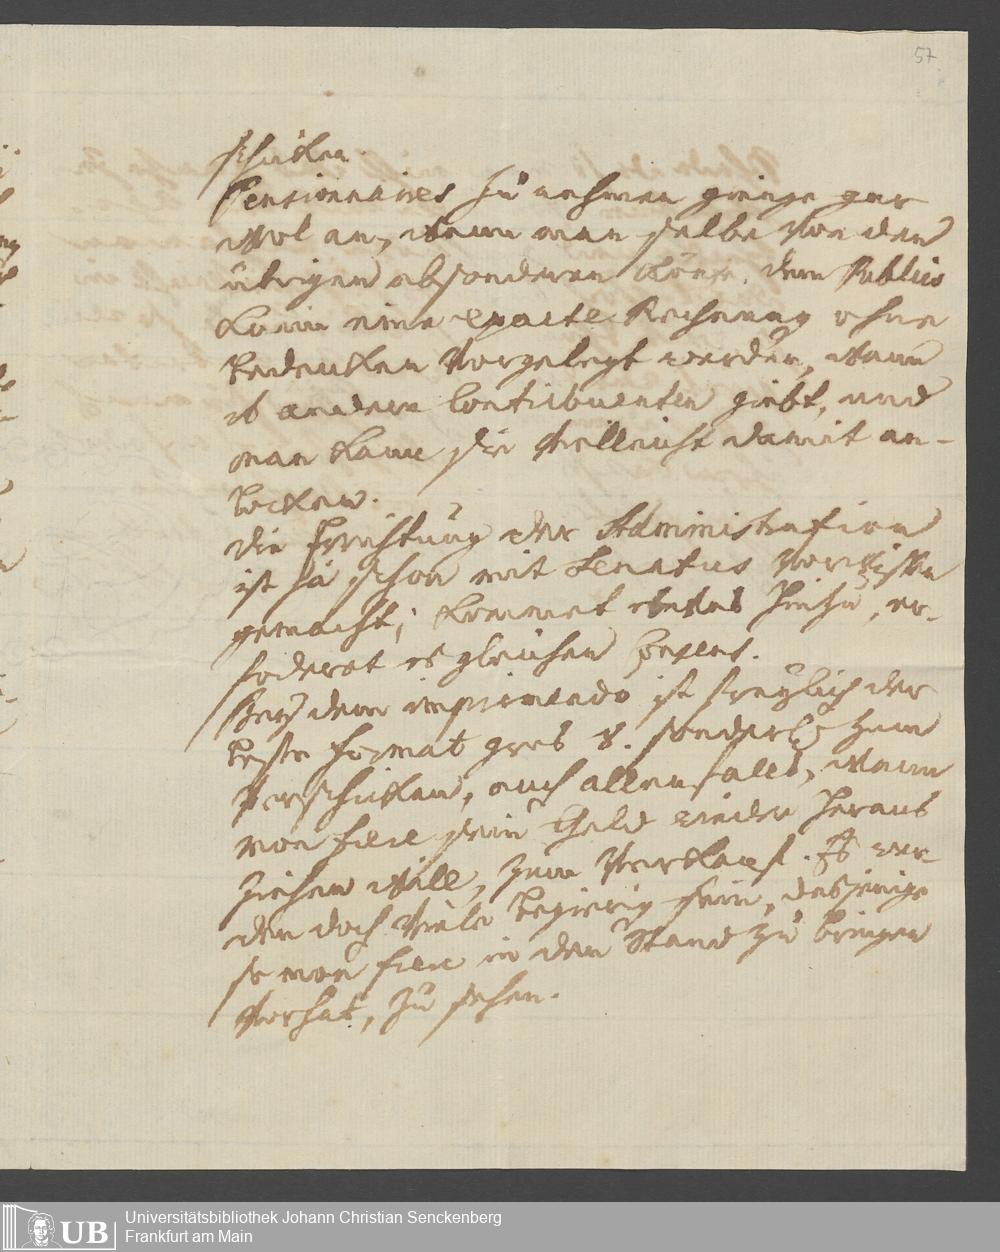 57
schicken.
Pensionaires zu nehmen gienge gar
wol an, wenn man selbe von den
übrigen absonderen könte. dem Publico
kann eine exacte Rechnung ohne
bedencken vorgelegt werden, wann
es andere Contribuenten giebt, und
man kann sie vielleicht damit an-
locken.
die Errichtung der Administration
ist ja schon mit Senatus vorwissen
gemacht; kommet etwas hinzu, er-
fodert es gleichen Consens.
Bey dem imprimendo ist freylich der
beste format gros 8. sonderl. zum
verschicken, auch allenfalls, wann
man hier sein Geld wieder heraus
ziehen will, zum Verkauf. Es wer-
den doch viele begierig sein, dasjenige
so man hier in den Stand zu bringen
vorhat, zu sehen.
UB
Universitätsbibliothek Johann Christian Senckenberg
Frankfurt am Main